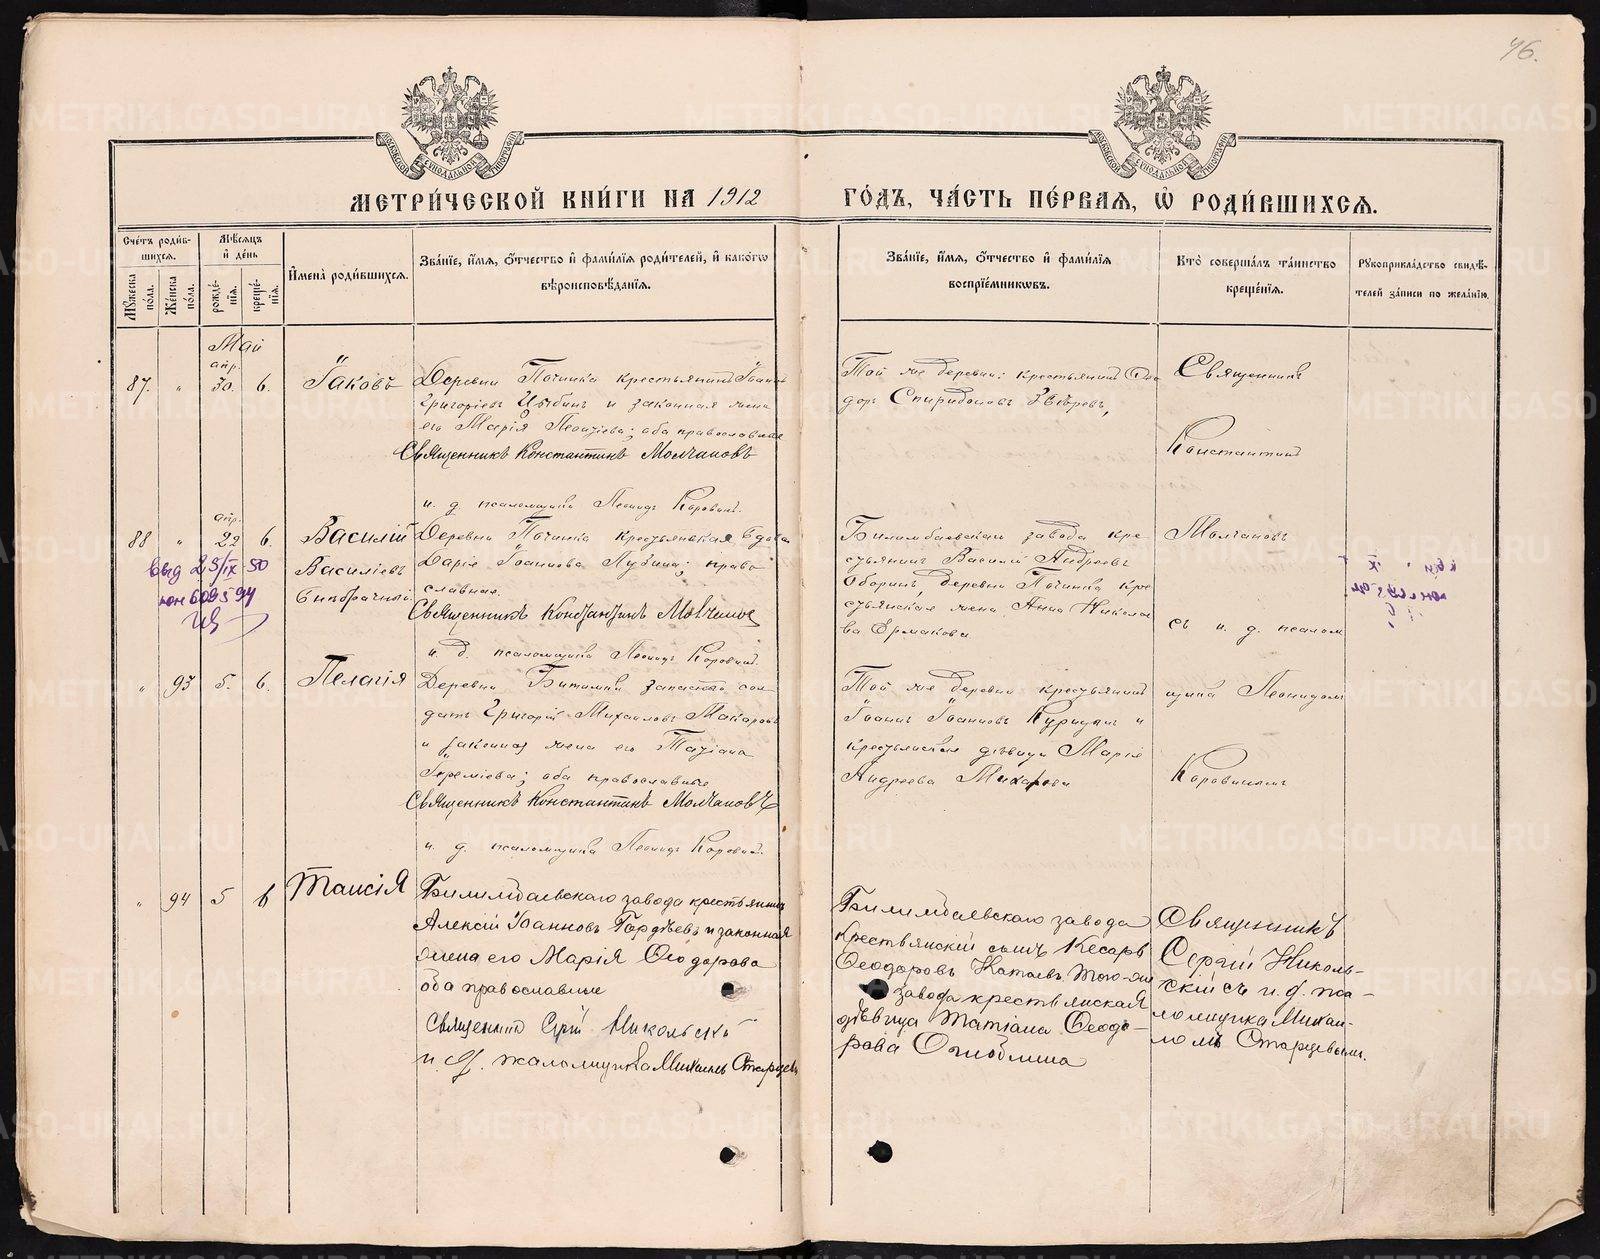 46.
МЕТРИ́ЧЕСКОЙ КНИ́ГИ НА 1912 ГО́ДЪ, ЧА́СТЬ ПЕ́РВАѦ, Ѡ РОДИ́ВШИХСѦ.
Сче́тъ роди́в-
шихсѧ.
Мꙋжеска по́ла.
Же́нска по́ла.
Мѣ́сѧцъ и де́нь
рожде́-нїѧ.
креще́-нїѧ.
И҆мена̀ роди́вшихсѧ.
Зва́нїе, и҆́мѧ, ѻ҆́тчество и҆ фами́лїѧ роди́телей, и҆ како́гѡ
вѣроисповѣ́данїѧ.
Зва́нїе, и҆́мѧ, ѻ҆́тчество и҆ фами́лїѧ
воспрїе́мникѡвъ.
Кто̀ соверша́лъ та́инство
креще́нїѧ.
Рꙋкоприкла́дство свидѣ́-
телей за́писи по жела́нїю.
Май
87. " апр. 30. 6.
Іаковъ
Деревни Починка крестьянинъ Іоаннъ
Григоріевъ Цыбинъ и законная жена
его Марія Леонтіева; оба православные
Священникъ Константинъ Молчановъ
и. д. псаломщика Леонидъ Коровинъ.
Той же деревни: крестьянинъ Ѳео
доръ Спиридоновъ Звѣревъ,
Священникъ
Константинъ
88 " апр. 22 6.
Василій
Василіевъ
внѣбрачный.
Деревни Починка крестьянская вдова
Дарія Іоаннова Лубина; право
славная.
Священникъ Константинъ Молчановъ
и. д. псаломщика Леонидъ Коровинъ.
выд 25/IX 50
609594
Билимбаевскаго завода кре
стьянинъ Василій Андреевъ
Оборинъ, деревни Починка кре
стьянская жена Анна Никола
ва Ермакова
Молчановъ
съ и. д. псалом
" 93 5. 6.
Пелагія
Деревни Битимки запасный сол
датъ Григорій Михаиловъ Макаровъ
и законная жена его Татіана
Іереміева; оба православные
Священникъ Константинъ Молчановъ
и. д. псаломщика Леонидъ Коровинъ.
Той же деревни крестьянинъ
Іоаннъ Іоанновъ и
крестьянская дѣвица Марія
Андреева Макарова
щика Леонидомъ
Коровинымъ
" 94 5 6
Таисія
Билимбаевскаго завода крестьянинъ
Алексій Іоанновъ Гордѣевъ и законная
жена его Марія Ѳеодорова
оба православные
Священникъ Сергій Никольскій
и. д. псаломщика Михаилъ Старцевъ
Билимбаевскаго завода
крестьянскій сынъ Кесарь
Ѳеодоровъ Катаевъ того-же
завода крестьянская
дѣвица Татіана Ѳеодо-
рова Оглоблина
Священникъ
Сергій Николь-
скій съ и. д. пса-
ломщика Михаи-
ломъ Старцевымъ.